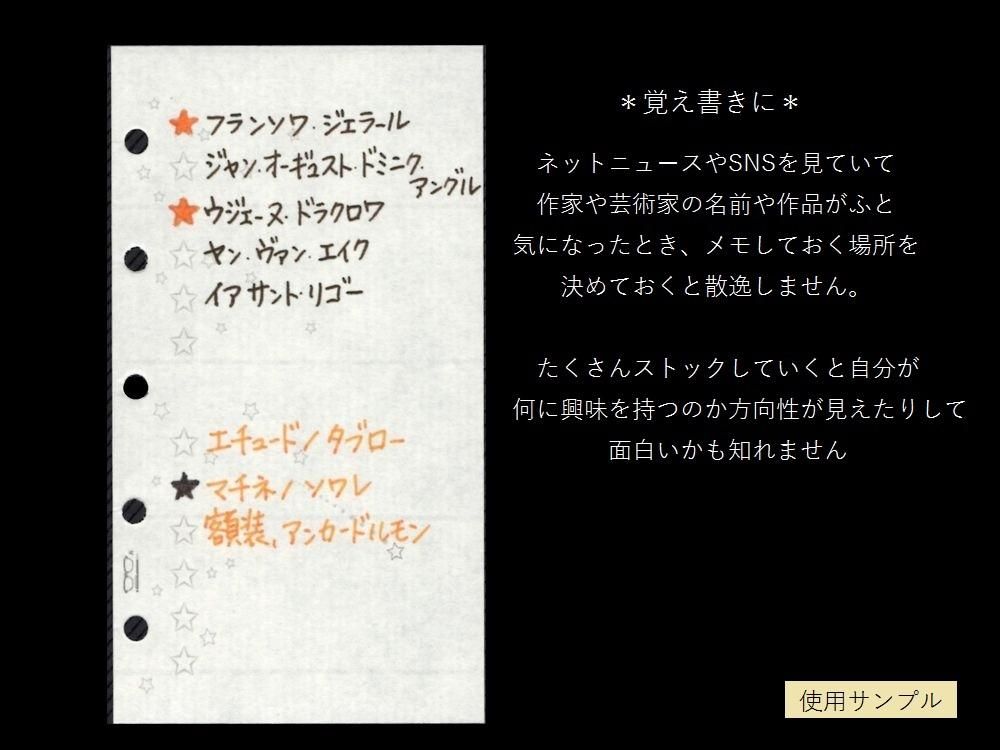 フランソワ・ジェラール
ジャン・オーギュスト・ドミニク
アングル
ウジェーヌ・ドラクロワ
ヤン・ヴァン・エイク
イアサント・リゴー
エチュード/タブロー
マチネ/ソワレ
額装、アンカードルモン
＊覚え書きに＊
ネットニュースやSNSを見ていて
作家や芸術家の名前や作品がふと
気になったとき、メモしておく場所を
決めておくと散逸しません。
たくさんストックしていくと自分が
何に興味を持つのか方向性が見えたりして
面白いかも知れません
使用サンプル